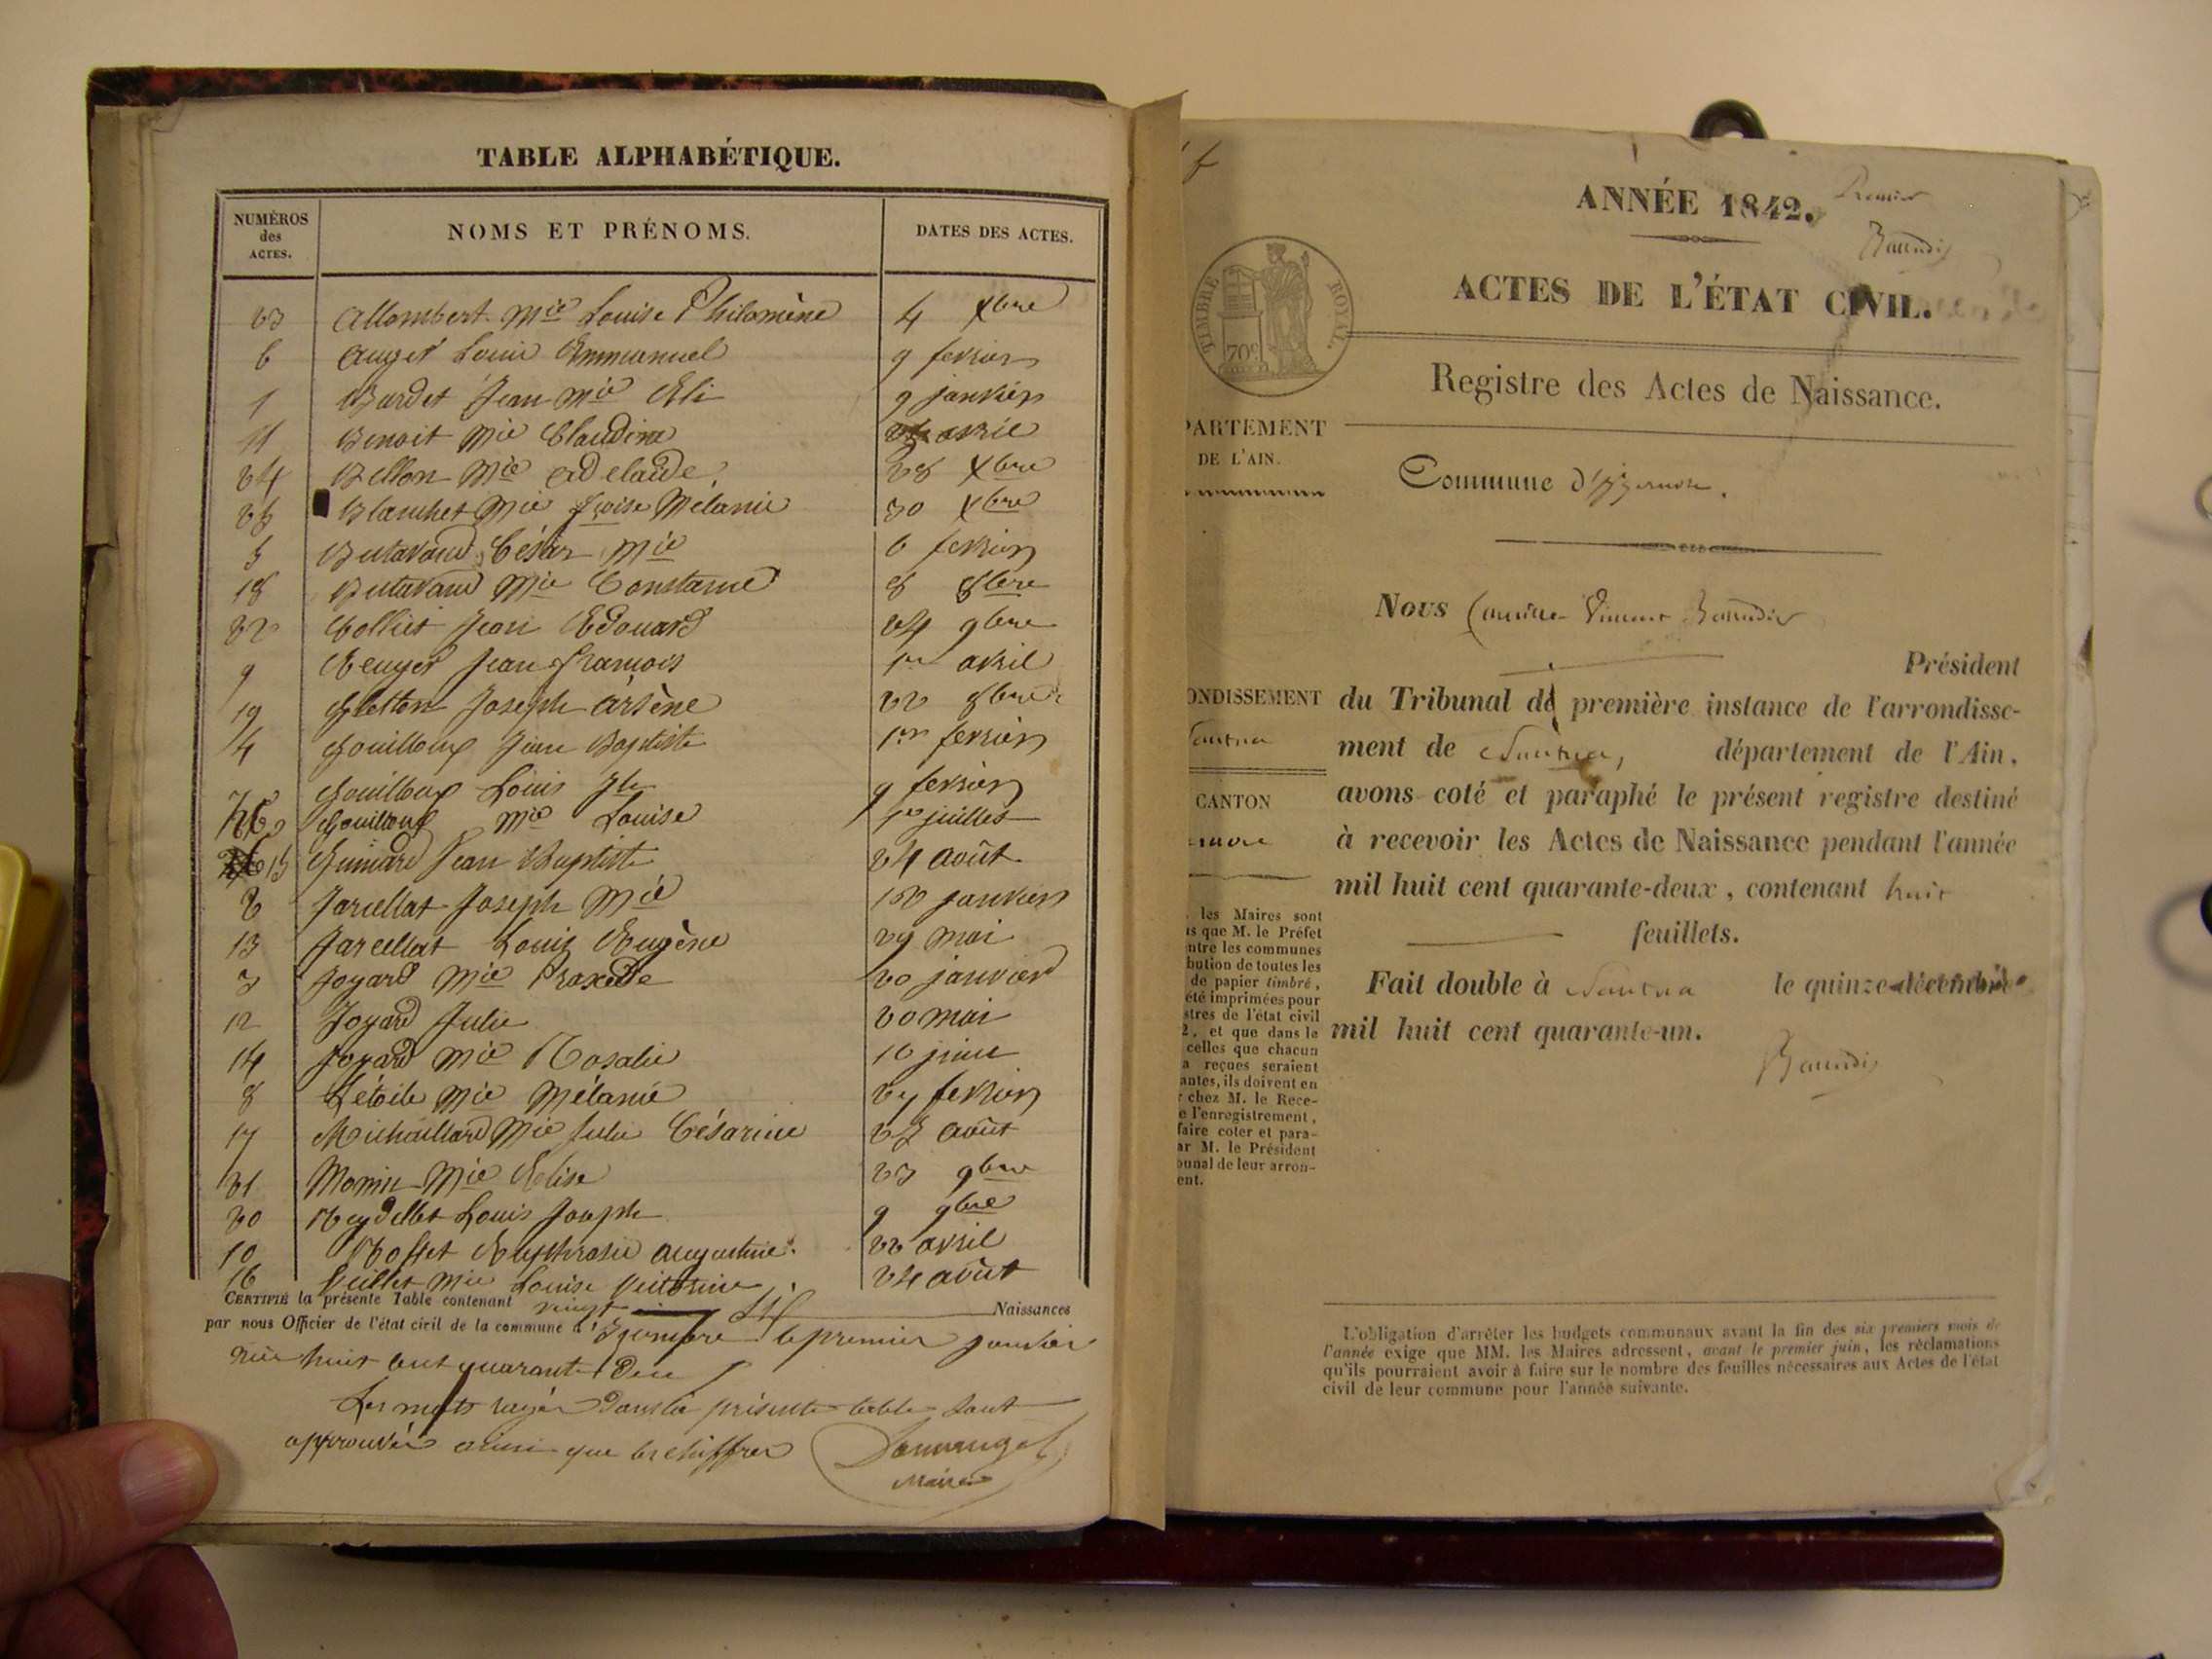 TABLE ALPHABÉTIQUE.
NUMÉROS des ACTES.
NOMS ET PRÉNOMS.
DATES DES ACTES.
23 Allombert Mie Louise Philomène 4 Xbre
6 Auger Louis Emmanuel 9 fevrier
1 Bardet Jean Mie Eli 9 janvier
11 Benoit Mie Claudine avril
24 Bellon Mie Adelaïde 28 Xbre
25 Blanchet Mie fçoise Mélanie 30 Xbre
5 Butavand César Mie 6 fevrier
18 Butavand Mie Constance 8 8bre
22 Colliet Jean Edouard 24 9bre
9 Jean françois 1er avril
19 Gletton Joseph Arsène 22 8bre
4 Gouilloux Jean Baptiste 1er fevrier
7 Gouilloux Louis 9 fevrier
Gouilloux Mie Louise juillet
15 Jean Baptiste 24 août
2 Jarcellat Joseph Mie janvier
13 Jarcellat Louis Eugène 29 mai
3 Joyard Mie Praxède 20 janvier
12 Joyard Julie 20 mai
14 Joyard Mie Rosalie 16 juin
8 Létoile Mie Mélanie 27 fevrier
17 Michaillard Mie Julie Césarine 25 août
21 Monin Mie Elise 23 9bre
20 Reydellet Louis Joseph 9 9bre
10 Rosset Euphrosie Augustine 22 avril
16 Mie Louise Victorine 24 août
CERTIFIÉ la présente Table contenant vingt six Naissances
par nous Officier de l'état civil de la commune d'Izernore le premier janvier
mil huit cent quarante deux
Les mots rayés dans la présente table sont
approuvés ainsi que les chiffres
Maire
Premier
ANNÉE 1842.
Baudin
ACTES DE L'ÉTAT CIVIL.
TIMBRE ROYAL.
70c
Registre des Actes de Naissance.
PARTEMENT
DE L'AIN.
Commune d'Izernore.
Nous Vincent
Président
ONDISSEMENT
du Tribunal de première instance de l'arrondisse-
Nantua
ment de Nantua, département de l'Ain,
CANTON
avons coté et paraphé le présent registre destiné
à recevoir les Actes de Naissance pendant l'année
mil huit cent quarante-deux, contenant huit
feuillets.
Fait double à Nantua le quinze décembre
mil huit cent quarante-un.
les Maires sont
is que M. le Préfet
ntre les communes
bution de toutes les
de papier timbré,
été imprimées pour
stres de l'état civil
2, et que dans le
celles que chacun
a reçues seraient
antes, ils doivent en
r chez M. le Rece-
e l'enregistrement,
faire coter et para-
ar M. le Président
bunal de leur arron-
ent.
L'obligation d'arrêter les budgets communaux avant la fin des six premiers mois de
l'année exige que MM. les Maires adressent, avant le premier juin, les réclamations
qu'ils pourraient avoir à faire sur le nombre des feuilles nécessaires aux Actes de l'état
civil de leur commune pour l'année suivante.